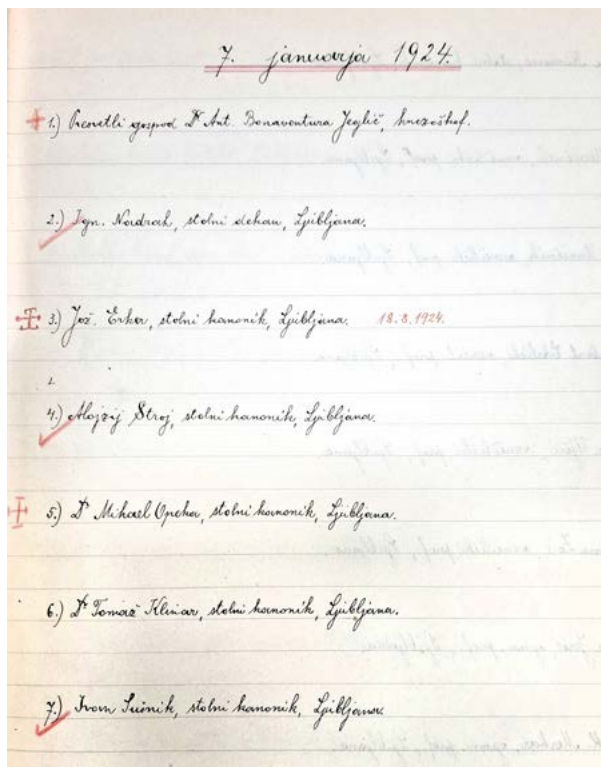 7. januarja 1924.
1.) Presvetli gospod Dr Ant. Bonaventura Jeglič, knezoškof.
2.) Ign. Nadrah, stolni dekan, Ljubljana.
3.) Jož. Erker, stolni kanonik, Ljubljana. 18.8.1924.
4.) Alojzij Stroj, stolni kanonik, Ljubljana.
5.) Dr Mihael Opeka, stolni kanonik, Ljubljana.
6.) Dr Tomaž Klinar, stolni kanonik, Ljubljana.
7.) Ivan Sušnik, stolni kanonik, Ljubljana.